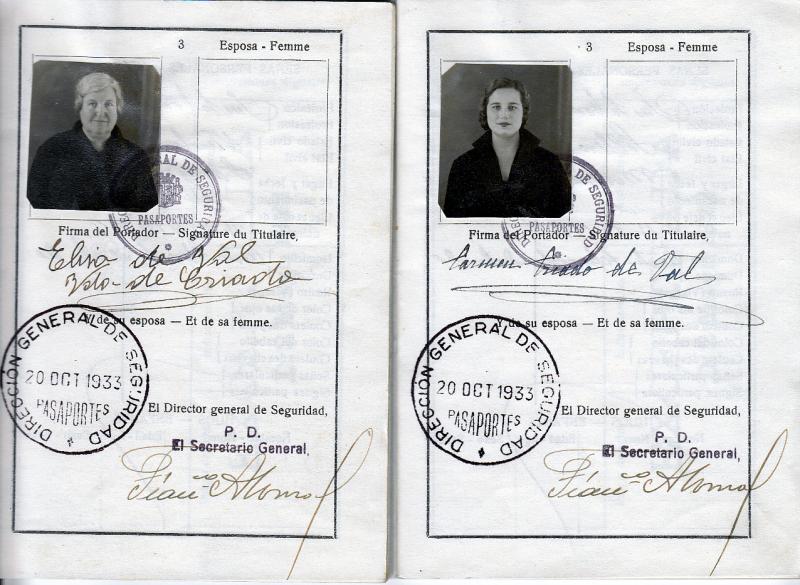 3 Esposa - Femme
DIRECCIÓN GENERAL DE SEGURIDAD
PASAPORTES
Firma del Portador — Signature du Titulaire,
Elisa de Val
Vda. de Criado
Y de su esposa — Et de sa femme.
DIRECCIÓN GENERAL DE SEGURIDAD
20 OCT 1933
PASAPORTES
El Director general de Seguridad,
P. D.
El Secretario General,
Alonso
3 Esposa - Femme
GENERAL DE SEGURIDAD
PASAPORTES
Firma del Portador — Signature du Titulaire,
Carmen Criado de Val
Y de su esposa — Et de sa femme.
DIRECCIÓN GENERAL DE SEGURIDAD
20 OCT 1933
PASAPORTES
El Director general de Seguridad,
P. D.
El Secretario General,
Alonso